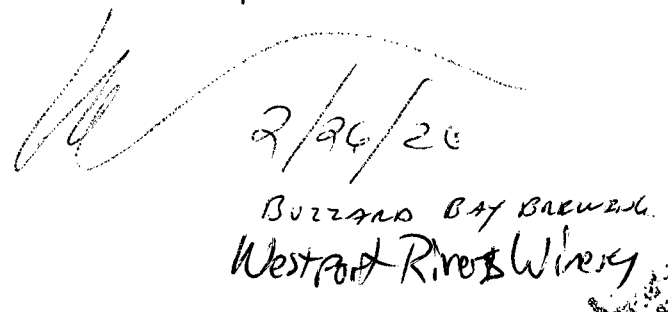 2/26/20
BUZZARD BAY BREWING.
Westport Rivers Winery